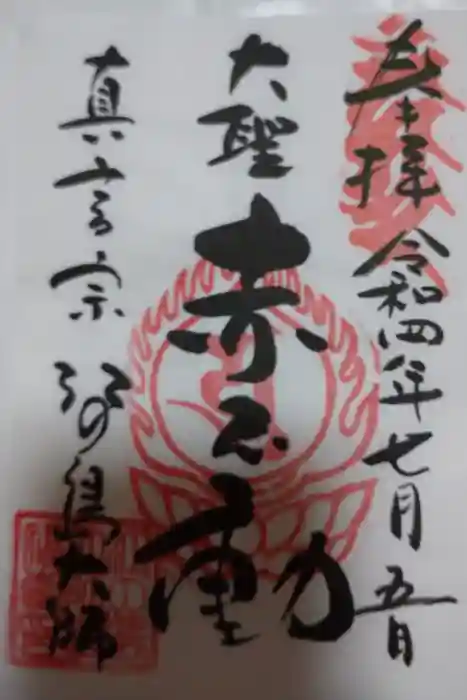 奉拝 令和四年七月五日
大聖 赤不動
真言宗 江の島大師